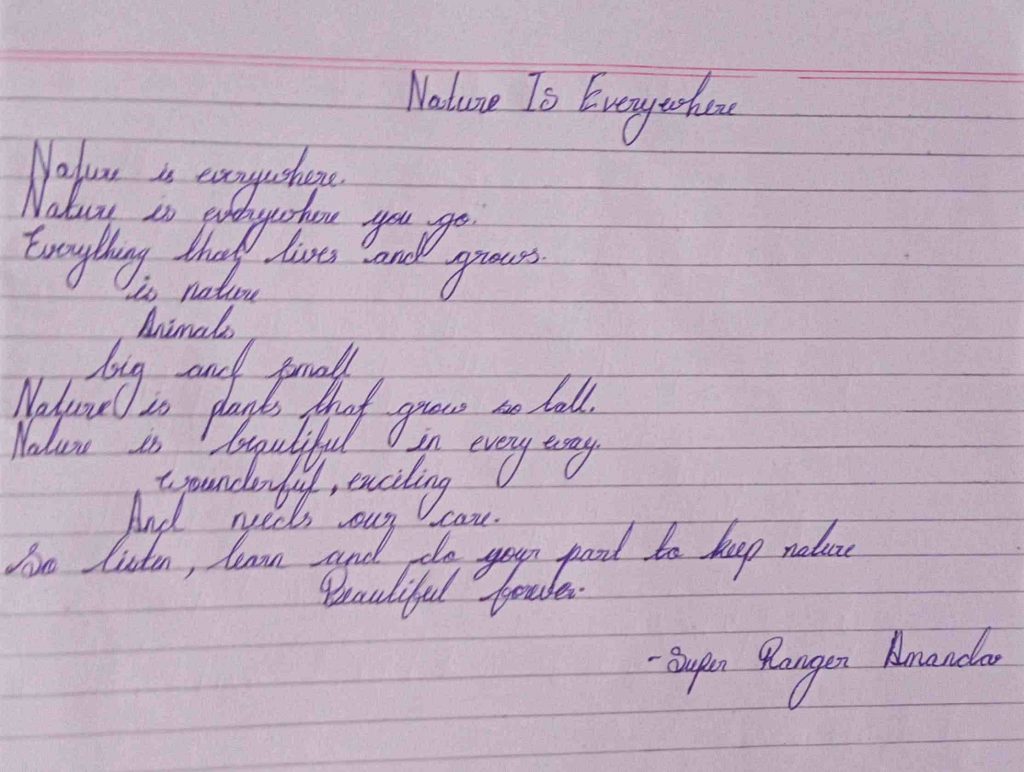 Nature Is Everywhere
Nature is everywhere.
Nature is everywhere you go.
Everything that lives and grows.
is nature
Animals
big and small
Nature is pants that grow so tall.
Nature is beautiful in every way.
wounderful, exciting
And needs our care.
So listen, learn and do your part to keep nature
Beautiful forever.
-Super Ranger Amanda